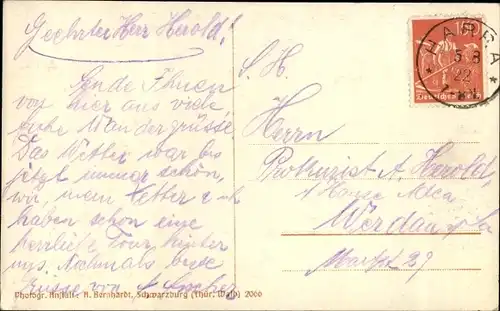 Geehrter Herr Herold!
Sende Ihnen
von hier aus viele
frohe Wandergrüsse.
Das Wetter war bis
jetzt immer schön,
wir, mein Vetter u. ich
haben schon eine
herrliche Tour hinter
uns. Nochmals beste
Grüsse von
Photogr. Anstalt: A. Bernhardt, Schwarzburg (Thür. Wald) 2066
S. H.
Herrn
Prokurist A. Herold,
Werdau i/Sa
Markt 39
5 8
22